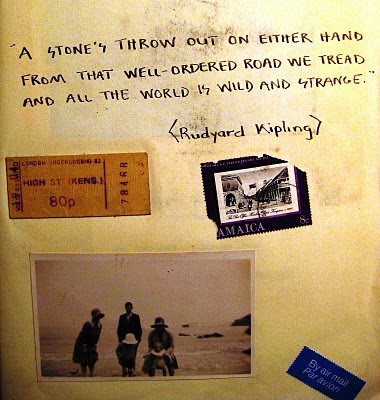 "A STONE'S THROW OUT ON EITHER HAND
FROM THAT WELL-ORDERED ROAD WE TREAD
AND ALL THE WORLD IS WILD AND STRANGE."
{Rudyard Kipling}
LONDON UNDERGROUND
HIGH ST (KENS.)
80p
AMAICA 8c
By air mail
Par avion